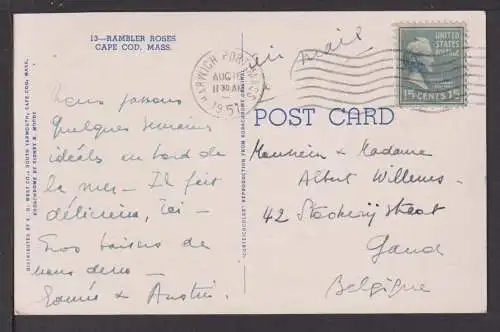 13—RAMBLER ROSES
CAPE COD, MASS.
Nous passons
Quelques semaines
idéals au bord de
la mer — Il fait
délicieux, ici —
Nos baisers de
nous deux —
& Austin
DISTRIBUTED BY E. D. WEST CO., SOUTH YARMOUTH, CAPE COD, MASS.
KODACHROME BY
"CURTEICHCOLOR" REPRODUCTION FROM KODACHROME ORIGINAL
HARWICH PORT, MASS.
AUG
11 30 AM
1951
Air mail
UNITED
STATES
POSTAGE
15 CENTS 15
POST CARD
Monsieur & Madame
Albert Willems
42 street
Gand
Belgique